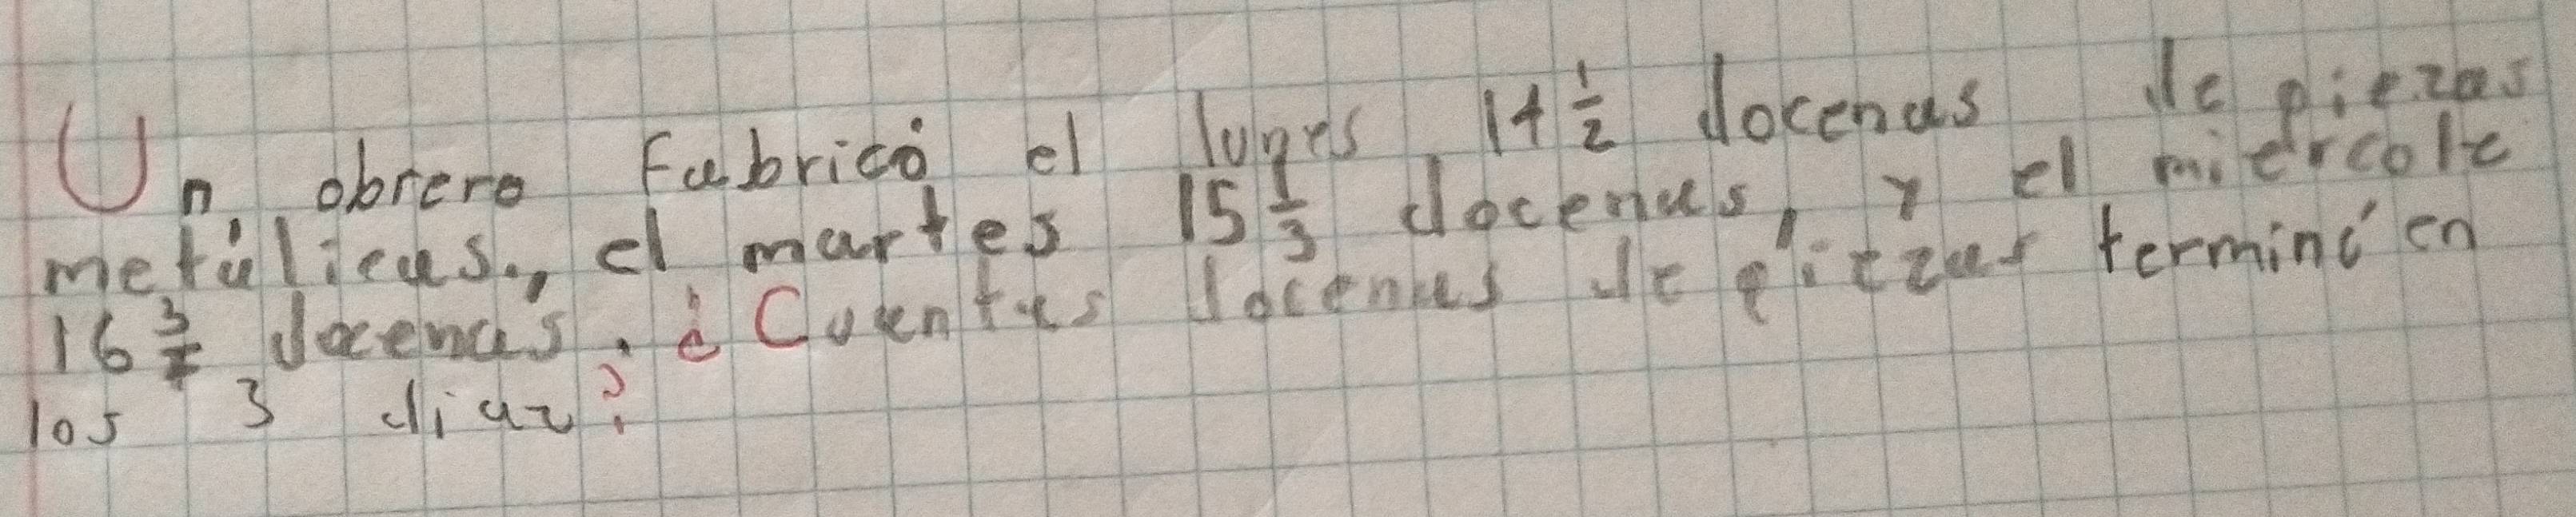 Un obrero Fabricó el lunes 14 1/2 docenas de piezas
metálicas., el martes 15 1/3 docenas, y el miercole
16 3/4 docenas. ¿Cuantas docenas de piezas terminó en
los 3 diaz?